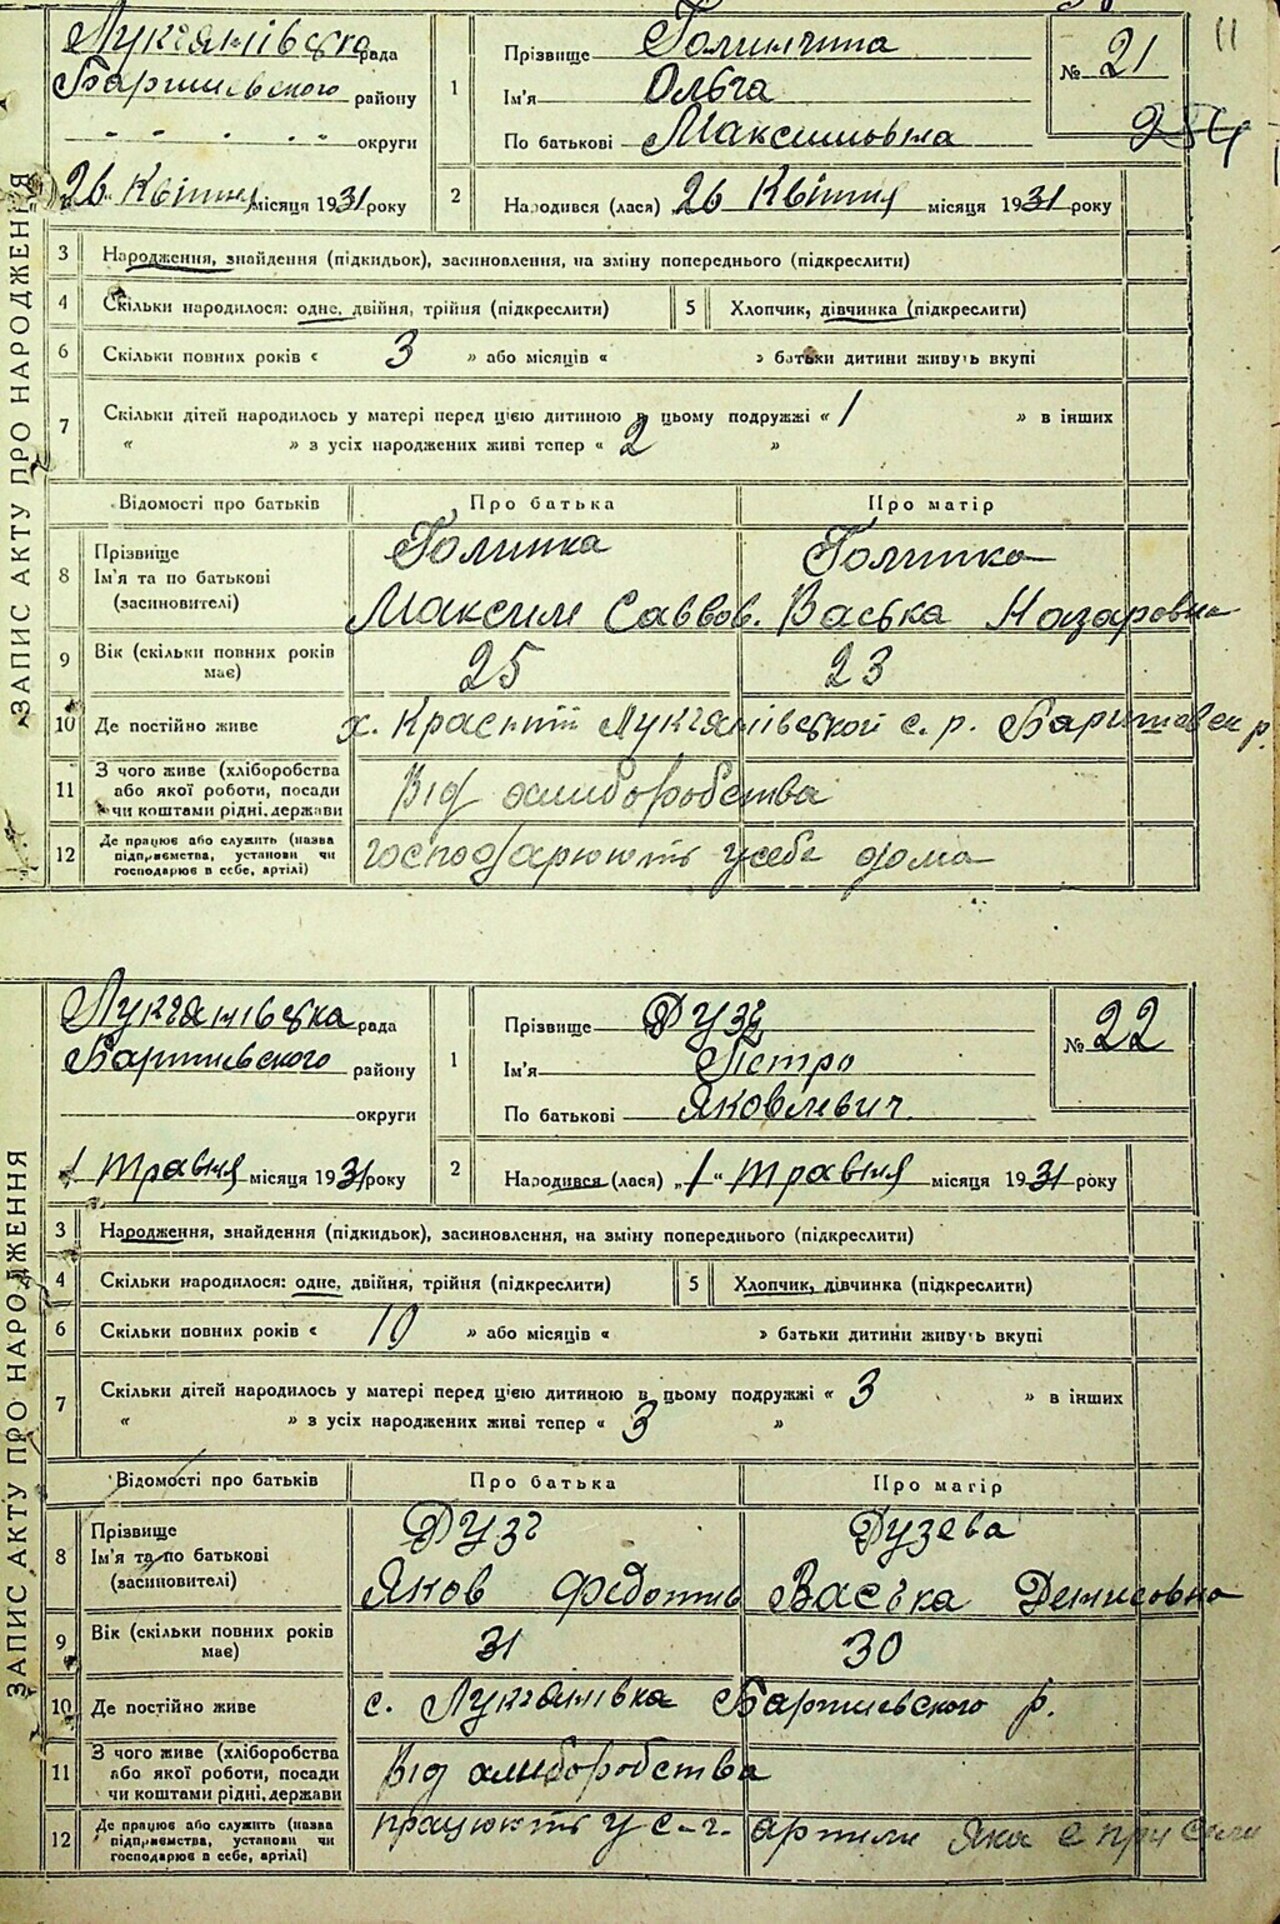 11
ЗАПИС АКТУ ПРО НАРОДЖЕННЯ
Лукʼянівська рада
Баришевського району
округи
„26" Квітня місяця 1931 року
1
Прізвище
Імʼя Ольга
По батькові Максимовна
№ 21
254
2
Народився (лася) „26 Квітня місяця 1931 року
3 Народження, знайдення (підкидьок), засиновлення, на зміну попереднього (підкреслити)
4 Скільки народилося: одне, двійня, трійня (підкреслити) 5 Хлопчик, дівчинка (підкреслити)
6 Скільки повних років « 3 » або місяців « » батьки дитини живуть вкупі
7 Скільки дітей народилось у матері перед цією дитиною в цьому подружжі « 1 » в інших
« » з усіх народжених живі тепер « 2 »
Відомості про батьків Про батька Про матір
8 Прізвище Голинка Голинка
Імʼя та по батькові
(засиновителі) Максим Саввов. Васька Назаровна
9 Вік (скільки повних років має) 25 23
10 Де постійно живе х. Лукʼянівської с. р. р.
11 З чого живе (хліборобства
або якої роботи, посади Від хлиборобства
чи коштами рідні, держави
12 Де працює або служить (назва
підприємства, установи чи господарюють у себе дома
господарює в себе, артілі)
ЗАПИС АКТУ ПРО НАРОДЖЕННЯ
Лукʼянівська рада
Баришевського району
округи
1 травня місяця 1931 року
1
Прізвище Дузь
Імʼя Пєтро
По батькові Яковлевич
№ 22
2
Народився (лася) „1" травня місяця 1931 року
3 Народження, знайдення (підкидьок), засиновлення, на зміну попереднього (підкреслити)
4 Скільки народилося: одне, двійня, трійня (підкреслити) 5 Хлопчик, дівчинка (підкреслити)
6 Скільки повних років « 10 » або місяців « » батьки дитини живуть вкупі
7 Скільки дітей народилось у матері перед цією дитиною в цьому подружжі « 3 » в інших
« » з усіх народжених живі тепер « 3 »
Відомості про батьків Про батька Про матір
8 Прізвище Дузь Дузева
Імʼя та по батькові
(засиновителі) Яков Федотів Васька Денисовна
9 Вік (скільки повних років має) 31 30
10 Де постійно живе с. Лукʼянівка Баришевського р.
11 З чого живе (хліборобства
або якої роботи, посади Від хлиборобства
чи коштами рідні, держави
12 Де працює або служить (назва
підприємства, установи чи працюють у с-г. артили яка є при селі
господарює в себе, артілі)